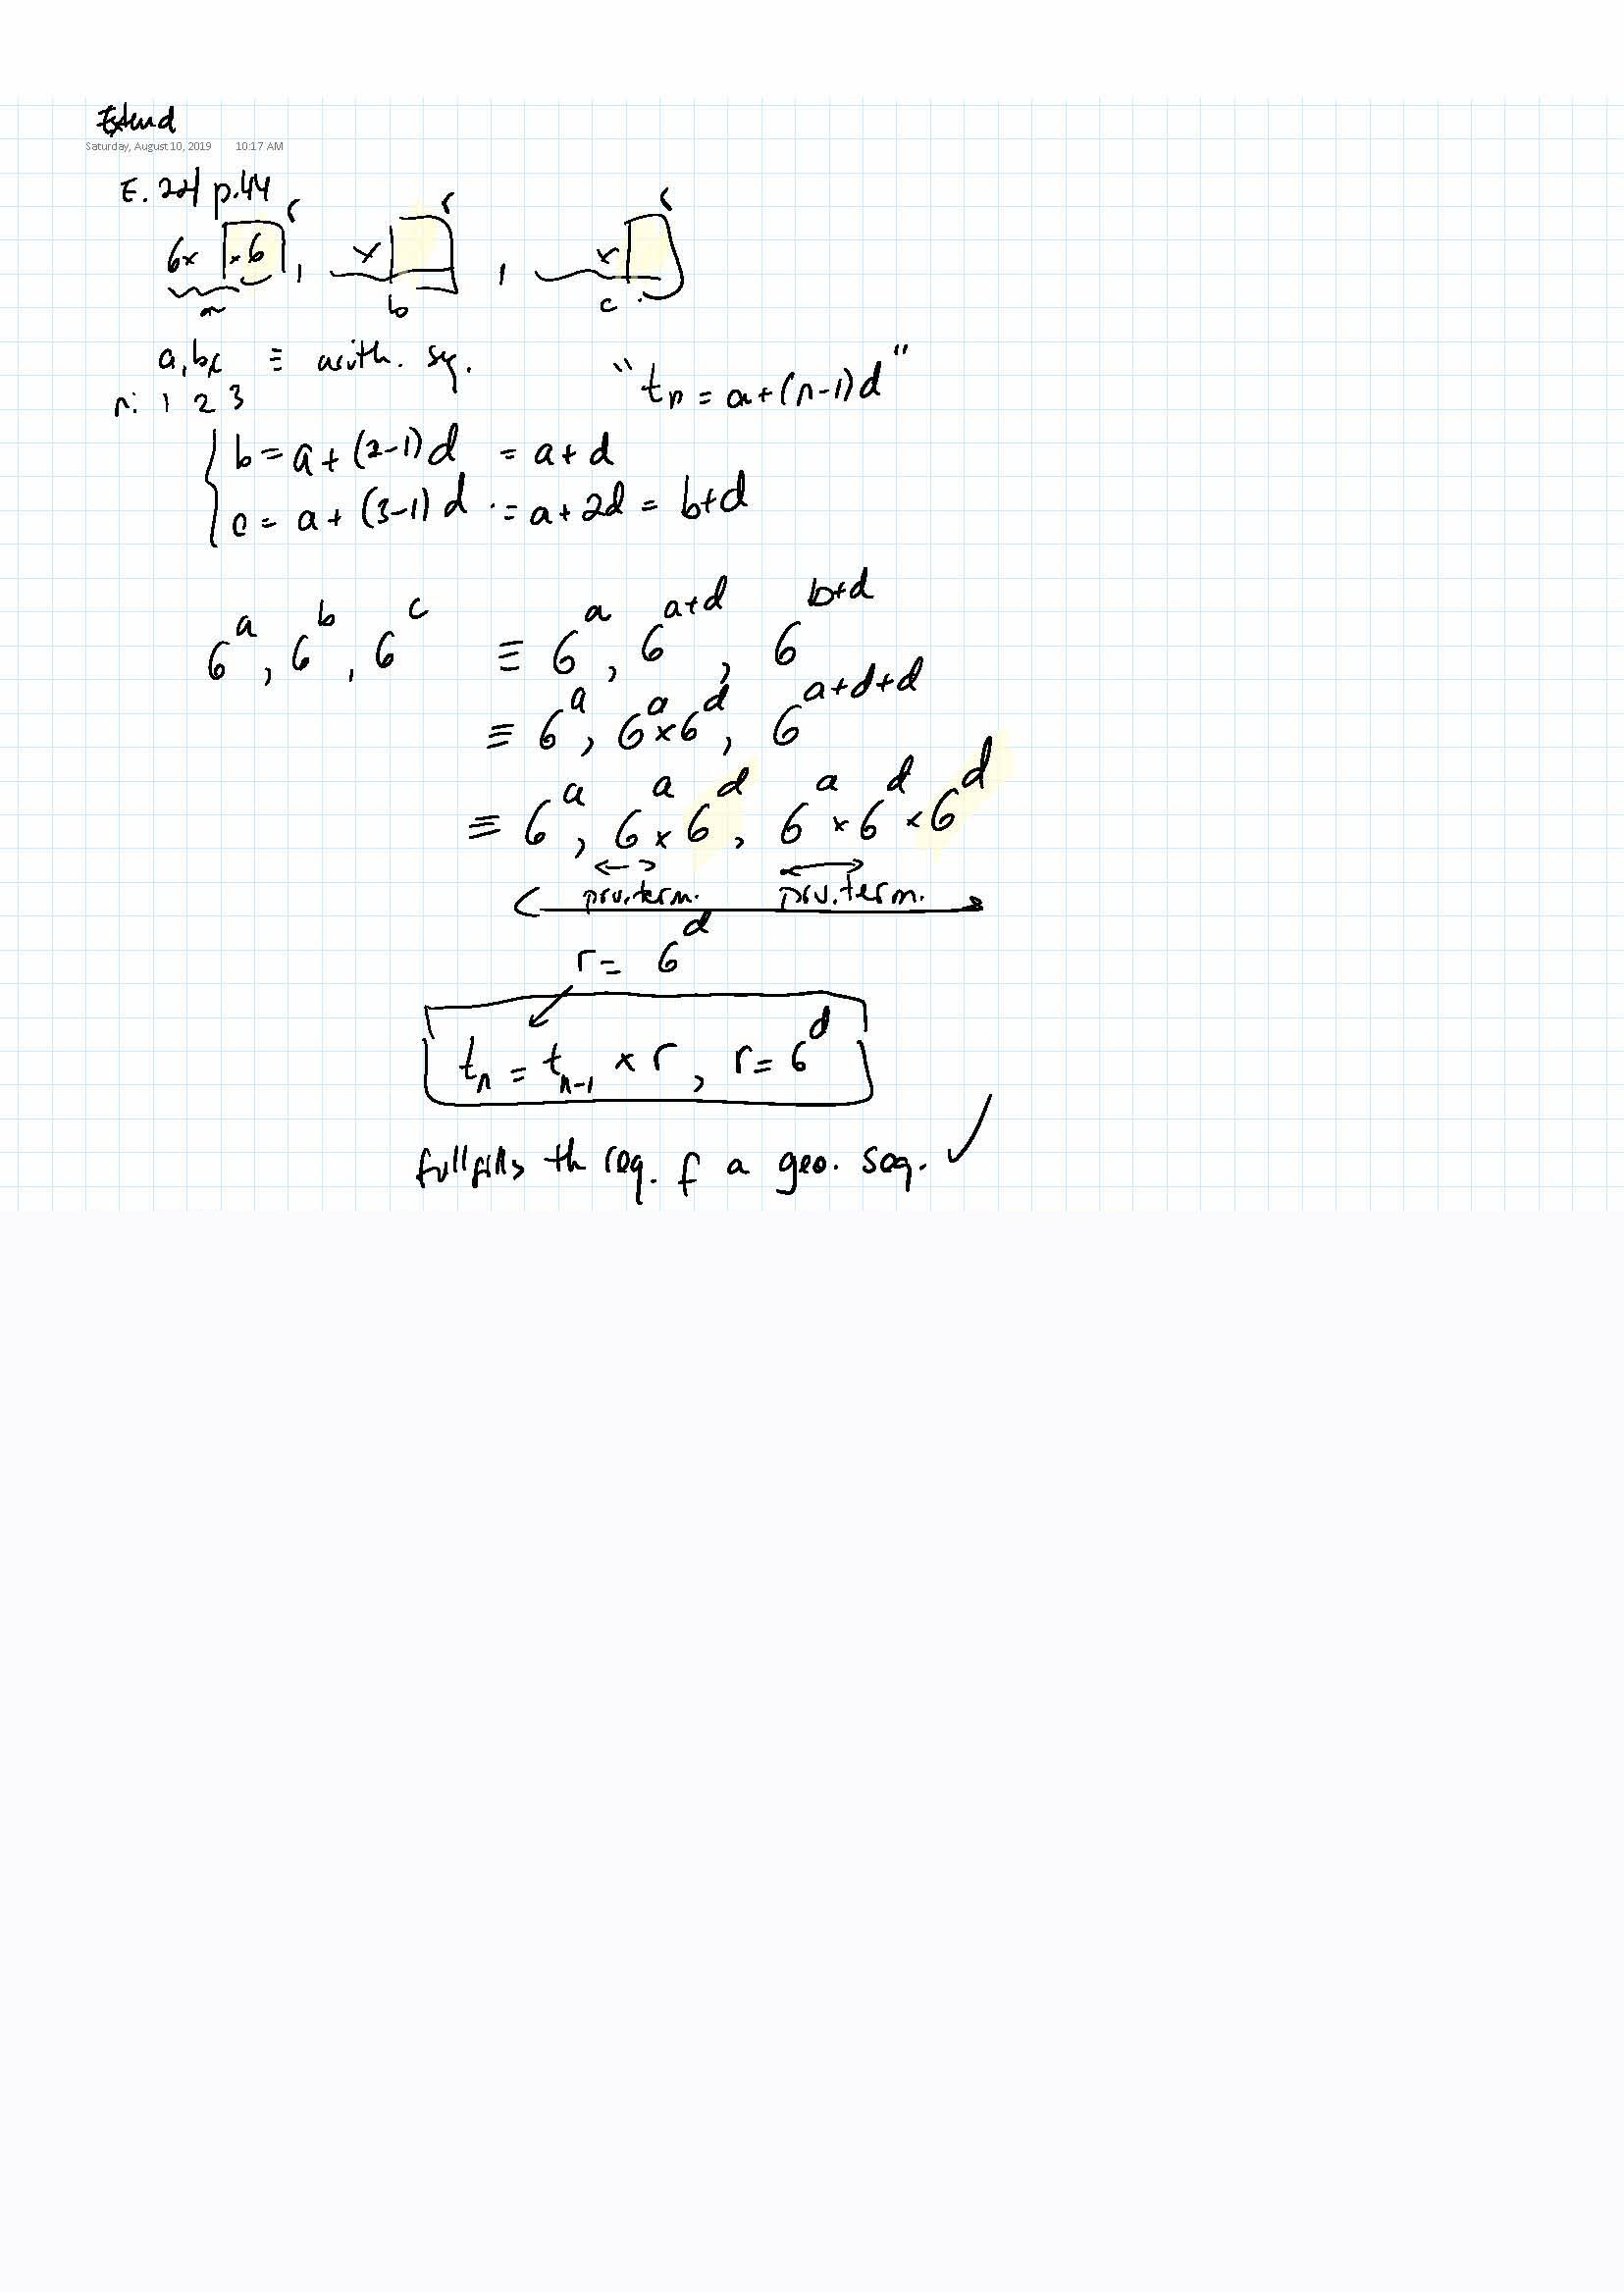 Extend
Saturday, August 10, 2019 10:17 AM
E. 24 p.44
6× ×6 r, × r, × r
a b c
a,b,c ≡ arith. sq.
"tₙ = a+(n-1)d"
n: 1 2 3
b = a + (2-1)d = a + d
c = a + (3-1)d = a + 2d = b+d
6^a, 6^b, 6^c ≡ 6^a, 6^(a+d), 6^(b+d)
≡ 6^a, 6^a×6^d, 6^(a+d+d)
≡ 6^a, 6^a × 6^d, 6^a × 6^d × 6^d
prv.term. prv.term.
r = 6^d
tₙ = tₙ₋₁ × r, r = 6^d
fullfills th req. f a geo. seq. ✓